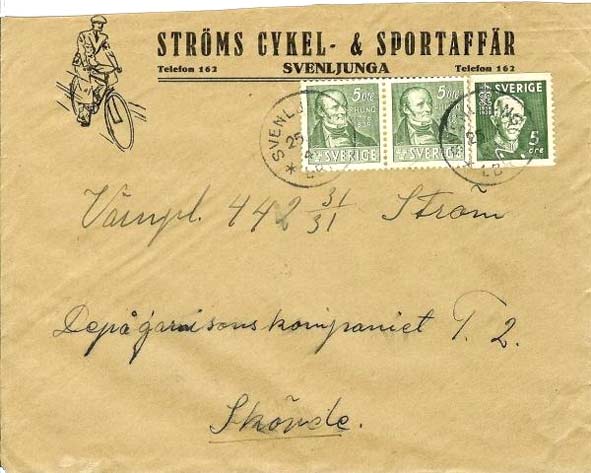 STRÖMS CYKEL- & SPORTAFFÄR
Telefon 162 SVENLJUNGA Telefon 162
5 öre 5 öre SVERIGE
SVERIGE SVERIGE 5 öre
SVENLJ
25
Värnpl. 442 31/31 Ström
Depågarnisonskompaniet T. 2.
Skövde.